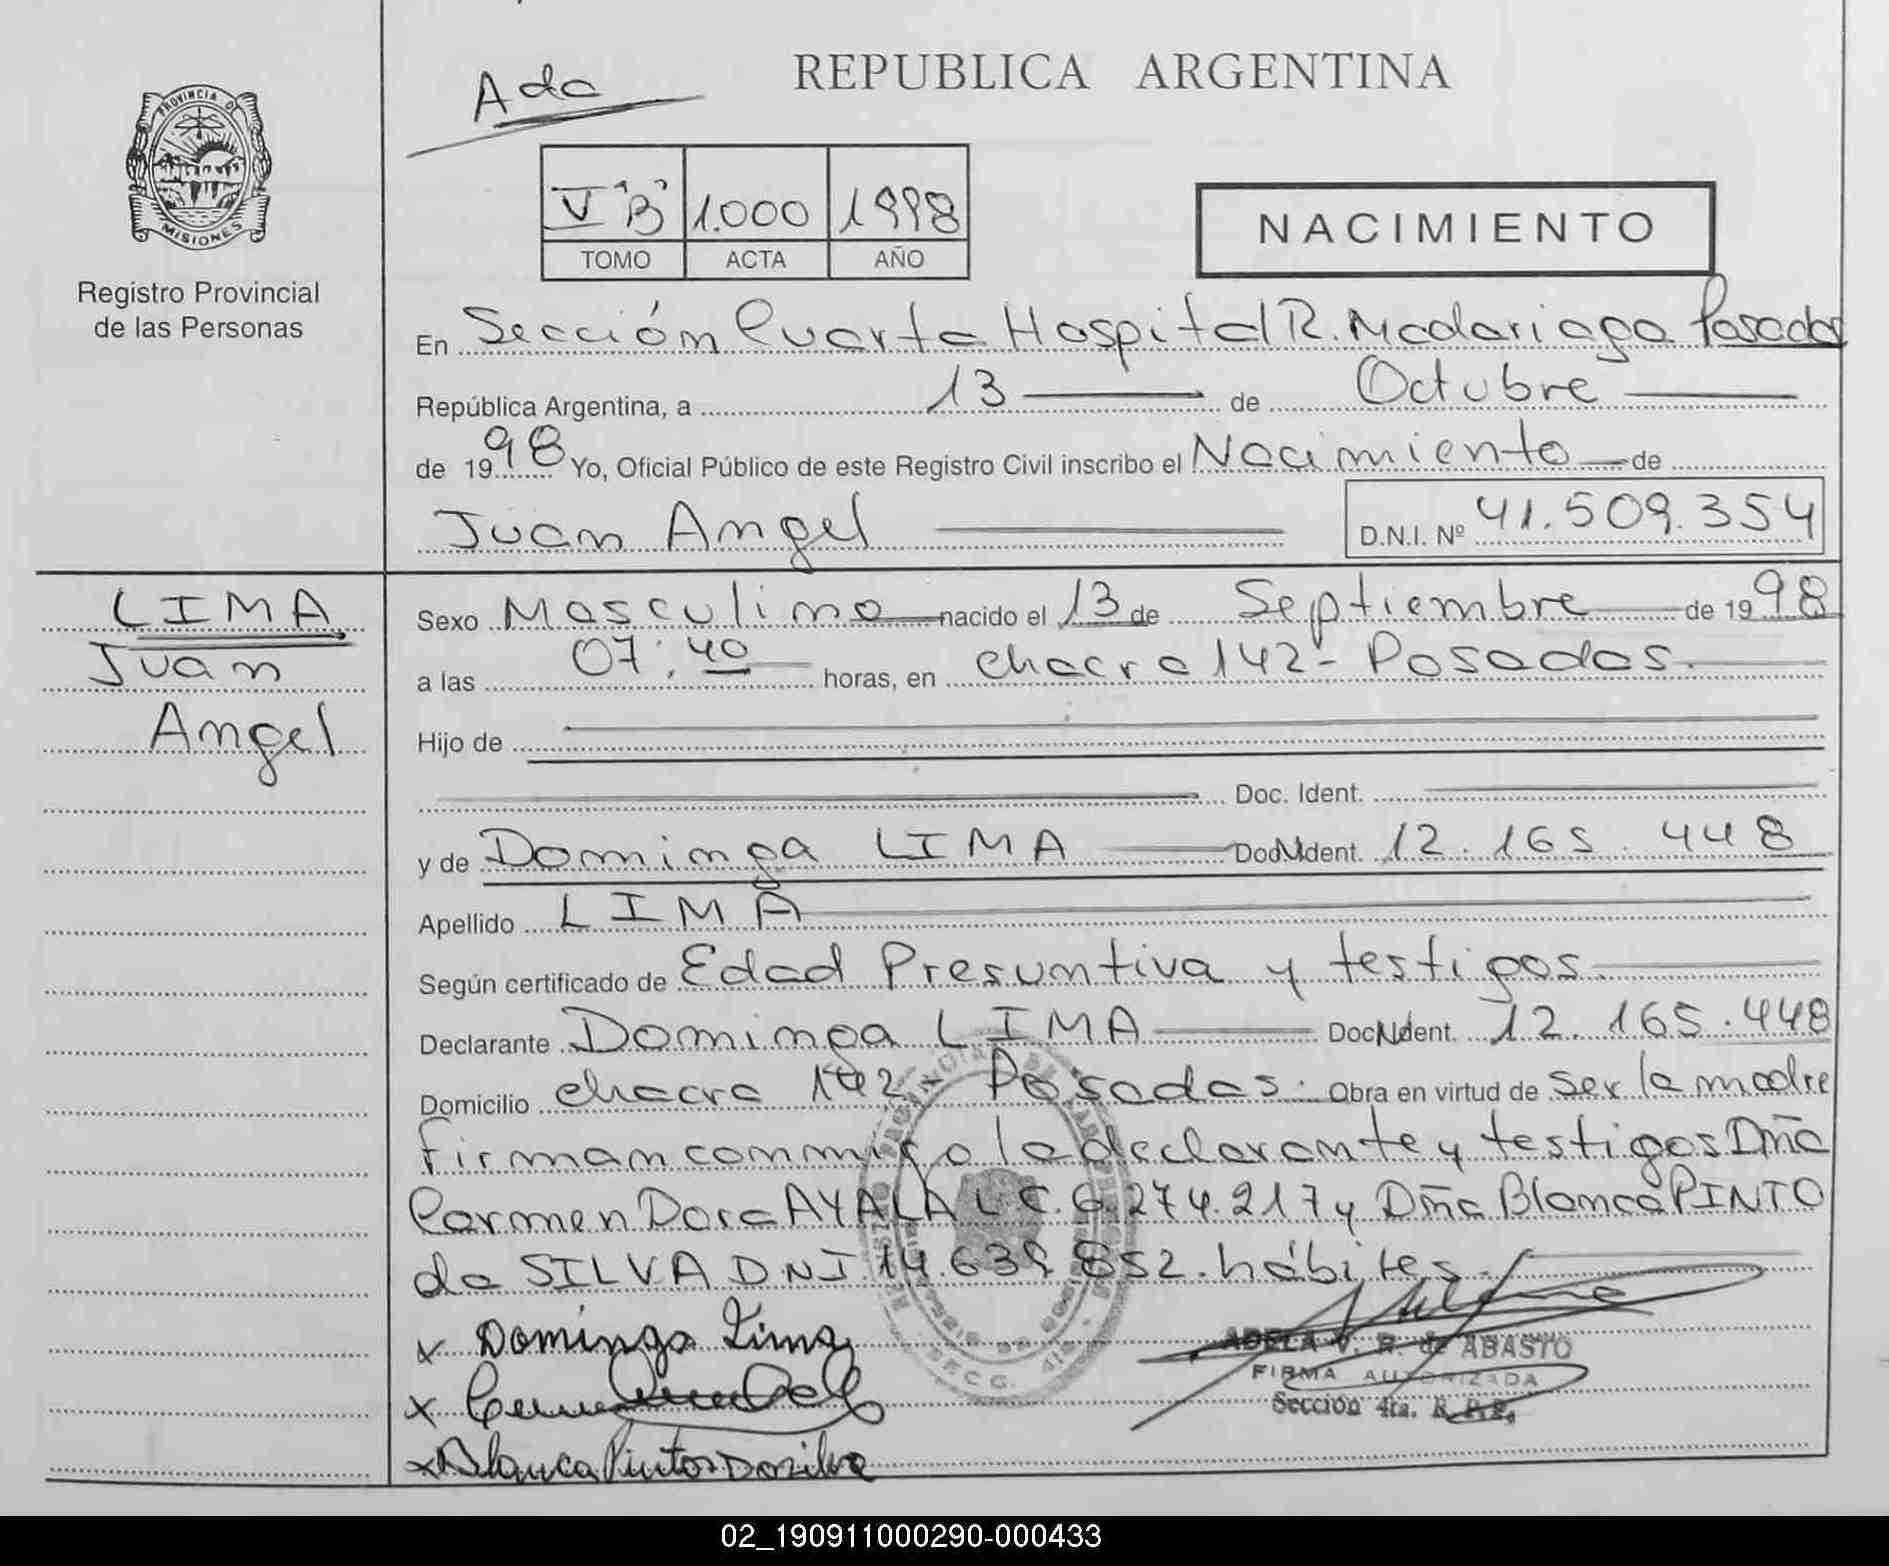 PROVINCIA D
MISIONES
Registro Provincial
de las Personas
Ada
REPUBLICA ARGENTINA
V "B" 1.000 1998
TOMO ACTA AÑO
NACIMIENTO
En Sección Cuarta Hospital R. Madariaga Posadas
República Argentina, a 13 de Octubre
de 1998 Yo, Oficial Público de este Registro Civil inscribo el Nacimiento de
Juan Angel D.N.I. Nº 41.509.354
LIMA
Juan
Angel
Sexo Masculino nacido el 13 de Septiembre de 1998
a las 07:40 horas, en chacra 142 - Posadas.
Hijo de
Doc. Ident.
y de Dominga LIMA Doc. Ident. 12.165.448
Apellido LIMA
Según certificado de Edad Presuntiva y testigos
Declarante Dominga LIMA Doc. Ident. 12.165.448
Domicilio chacra 142 - Posadas. Obra en virtud de ser la madre
firman conmigo la declarante y testigos Dña
Carmen Dora AYALA L C. 6.274.217 y Dña Blanca PINTO
da SILVA DNI 14.639.852. hábiles.
x Dominga Lima
x
x Blanca Pinto Da silva
ADELA V. R. de ABASTO
FIRMA AUTORIZADA
Sección 4ta. R. P. P.
SECC. 4ta
02_190911000290-000433